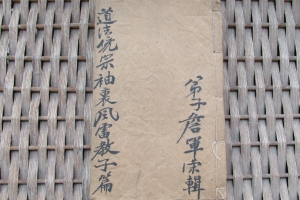 道法統宗袖裏風雷教子篇
弟子詹軍宗輯